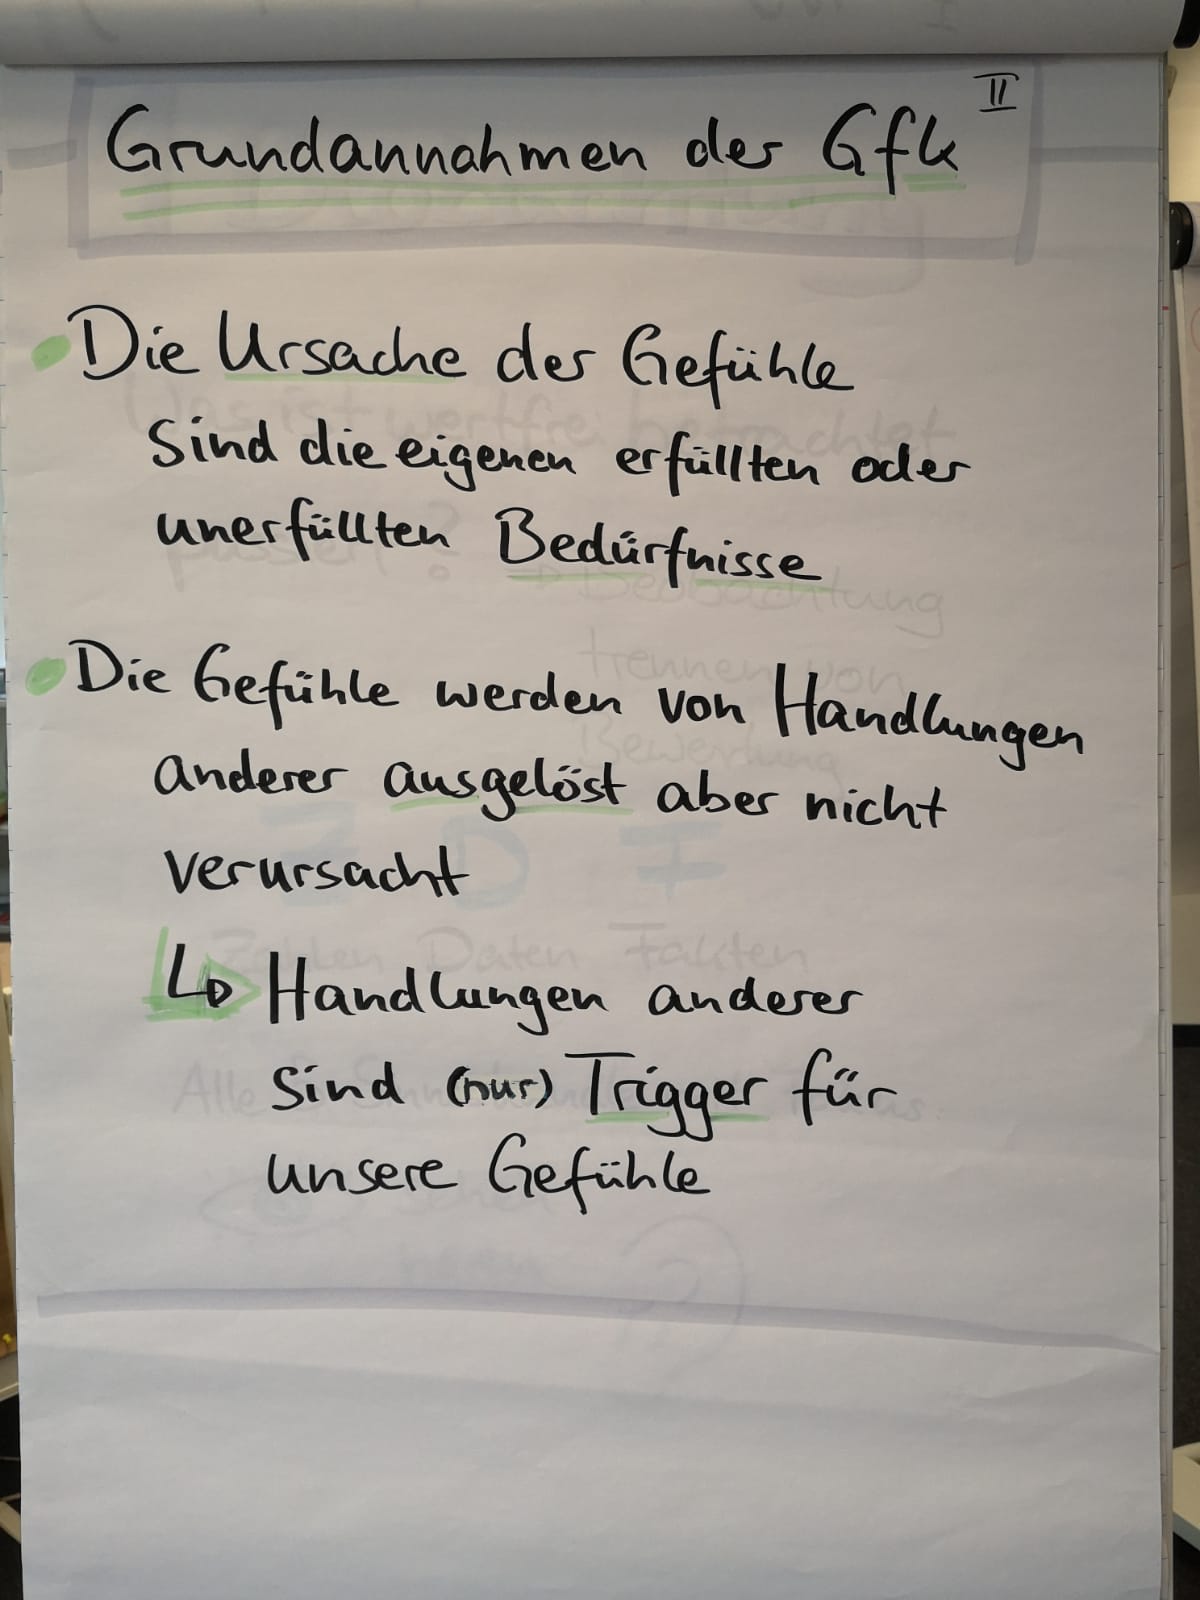 Grundannahmen der Gfk II
Die Ursache der Gefühle
sind die eigenen erfüllten oder
unerfüllten Bedürfnisse
Die Gefühle werden von Handlungen
anderer ausgelöst aber nicht
verursacht
Handlungen anderer
sind (nur) Trigger für
unsere Gefühle